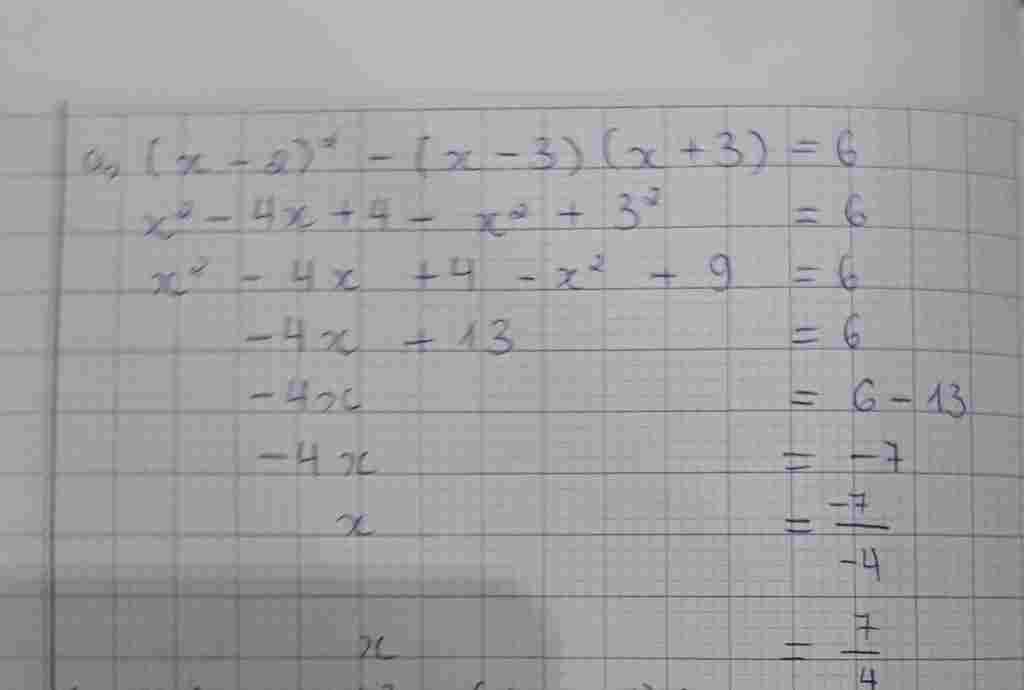 a, (x - 2)² - (x - 3)(x + 3) = 6
x² - 4x + 4 - x² + 3² = 6
x² - 4x + 4 - x² + 9 = 6
-4x + 13 = 6
-4x = 6 - 13
-4x = -7
x = -7/-4
x = 7/4